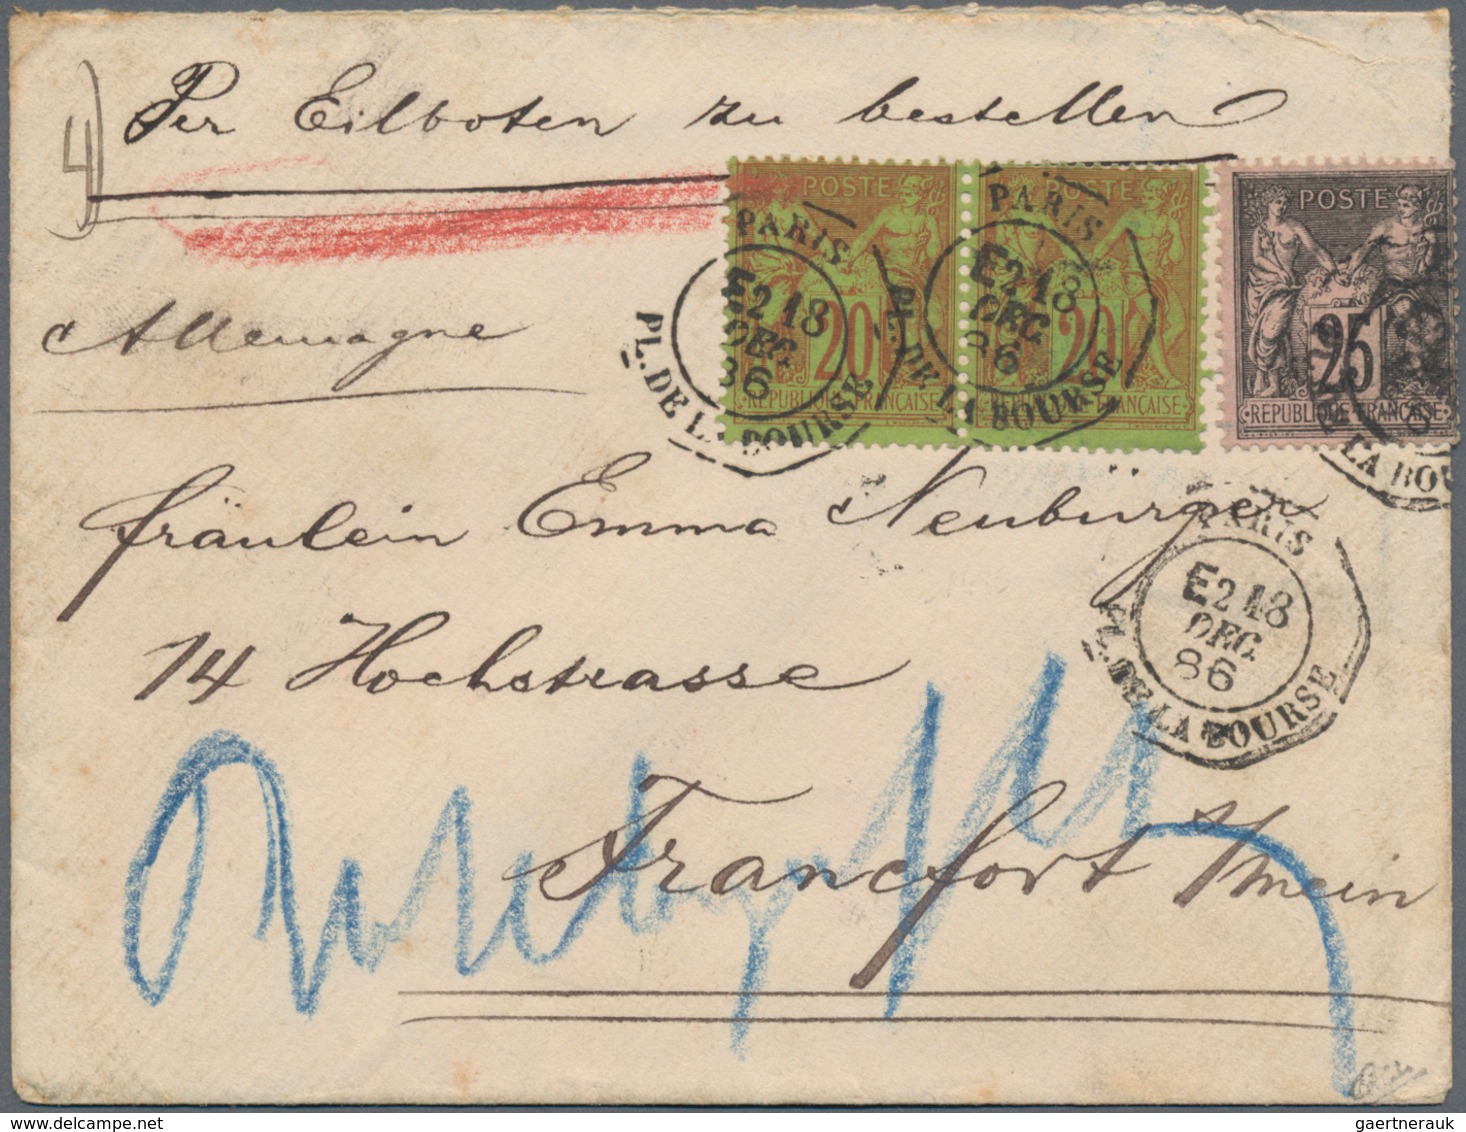 4)
Per Eilboten zu bestellen
POSTE POSTE POSTE
20 20 25
REPUBLIQUE FRANÇAISE REPUBLIQUE FRANÇAISE REPUBLIQUE FRANÇAISE
PARIS E2 18 DEC. 86 PL. DE LA BOURSE
PARIS E2 18 DEC. 86 PL. DE LA BOURSE
LA BOU
Allemagne
Fräulein Emma Neubürger
PARIS E2 18 DEC. 86 PL. DE LA BOURSE
14 Hochstrasse
Francfort s/mein
gaertnerauk.com